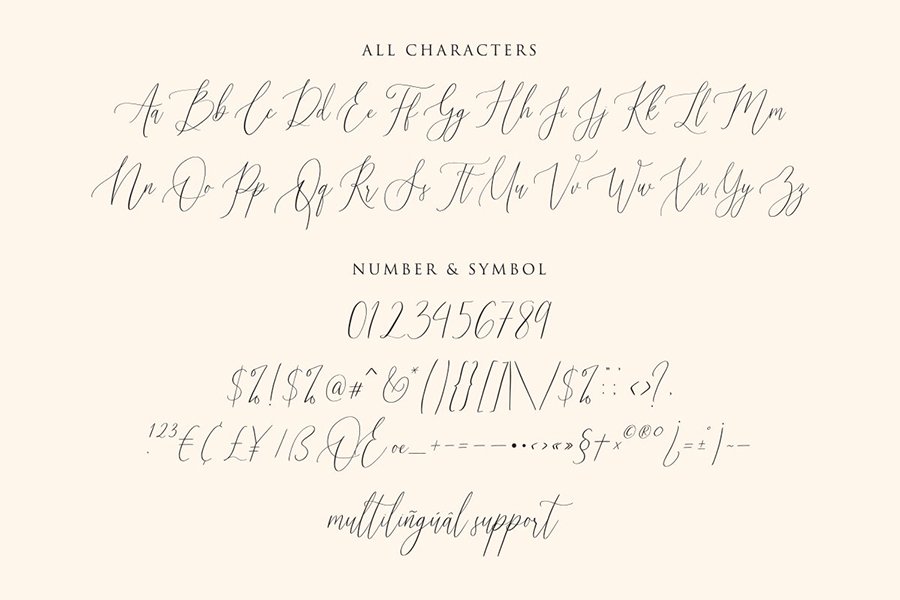 ALL CHARACTERS
Aa Bb Cc Dd Ee Ff Gg Hh Ii Jj Kk Ll Mm
Nn Oo Pp Qq Rr Ss Tt Uu Vv Ww Xx Yy Zz
NUMBER & SYMBOL
0123456789
$%!$%@#^&*(){}[]|\/$%"':;<>?.
123€¢£¥/ßŒœ_+-=——••‹›«»§†×©®°¿=±¡~-
multilingúâl support